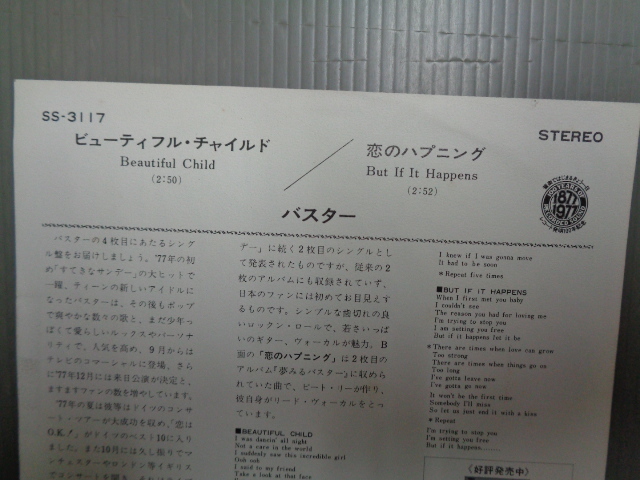 SS-3117
STEREO
ビューティフル・チャイルド
Beautiful Child
(2:50)
恋のハプニング
But If It Happens
(2:52)
1877
1977
バスター
バスターの4枚目にあたるシング
ル盤をお届けしましょう。'77年の初
め“すてきなサンデー”の大ヒットで
一躍、ティーンの新しいアイドルに
なったバスターは、その後もポップ
で爽やかな数々の歌と、まだ少年っ
ぽくて愛らしいルックスやパーソナ
リティで、人気を高め、9月からは
テレビのコマーシャルに登場、さら
に'77年12月には来日公演が決定と、
ますますファンの数を増やしています。
'77年の夏は彼等はドイツのコンサ
ート・ツアーが大成功を収め、「恋は
O.K.!」がドイツのベスト10に入り
ました。また10月には久し振りでマ
ンチェスターやロンドン等イギリス
デー」に続く2枚目のシングルとし
て発表されたものですが、従来の2
枚のアルバムにも収録されていず、
日本のファンには初めてお目見えす
るものです。シンプルな歯切れの良
いロックン・ロールで、若さいっぱ
いのギター、ヴォーカルが魅力。B
面の「恋のハプニング」は2枚目の
アルバム「夢みるバスター」に収めら
れていた曲で、ピート・リーが作り、
彼自身がリード・ヴォーカルをとっ
ています。
■BEAUTIFUL CHILD
I was dancin' all night
Not a care in the world
I suddenly saw this incredible girl
Ooh ooh
I said to my friend
Take a look at that face
I knew if I was gonna move
It had to be soon
* Repeat five times
■BUT IF IT HAPPENS
When I first met you baby
I couldn't see
The reason you had for loving me
I'm trying to stop you
I am setting you free
But if it happens let it be
* There are times when love can grow
Too strong
There are times when things go on
Too long
I've gotta leave now
I've gotta go now
It won't be the first time
Somebody I'll miss
So let us just end it with a kiss
* Repeat
I'm trying to stop you
I'm setting you free
But if it happens........
〈好評発売中〉